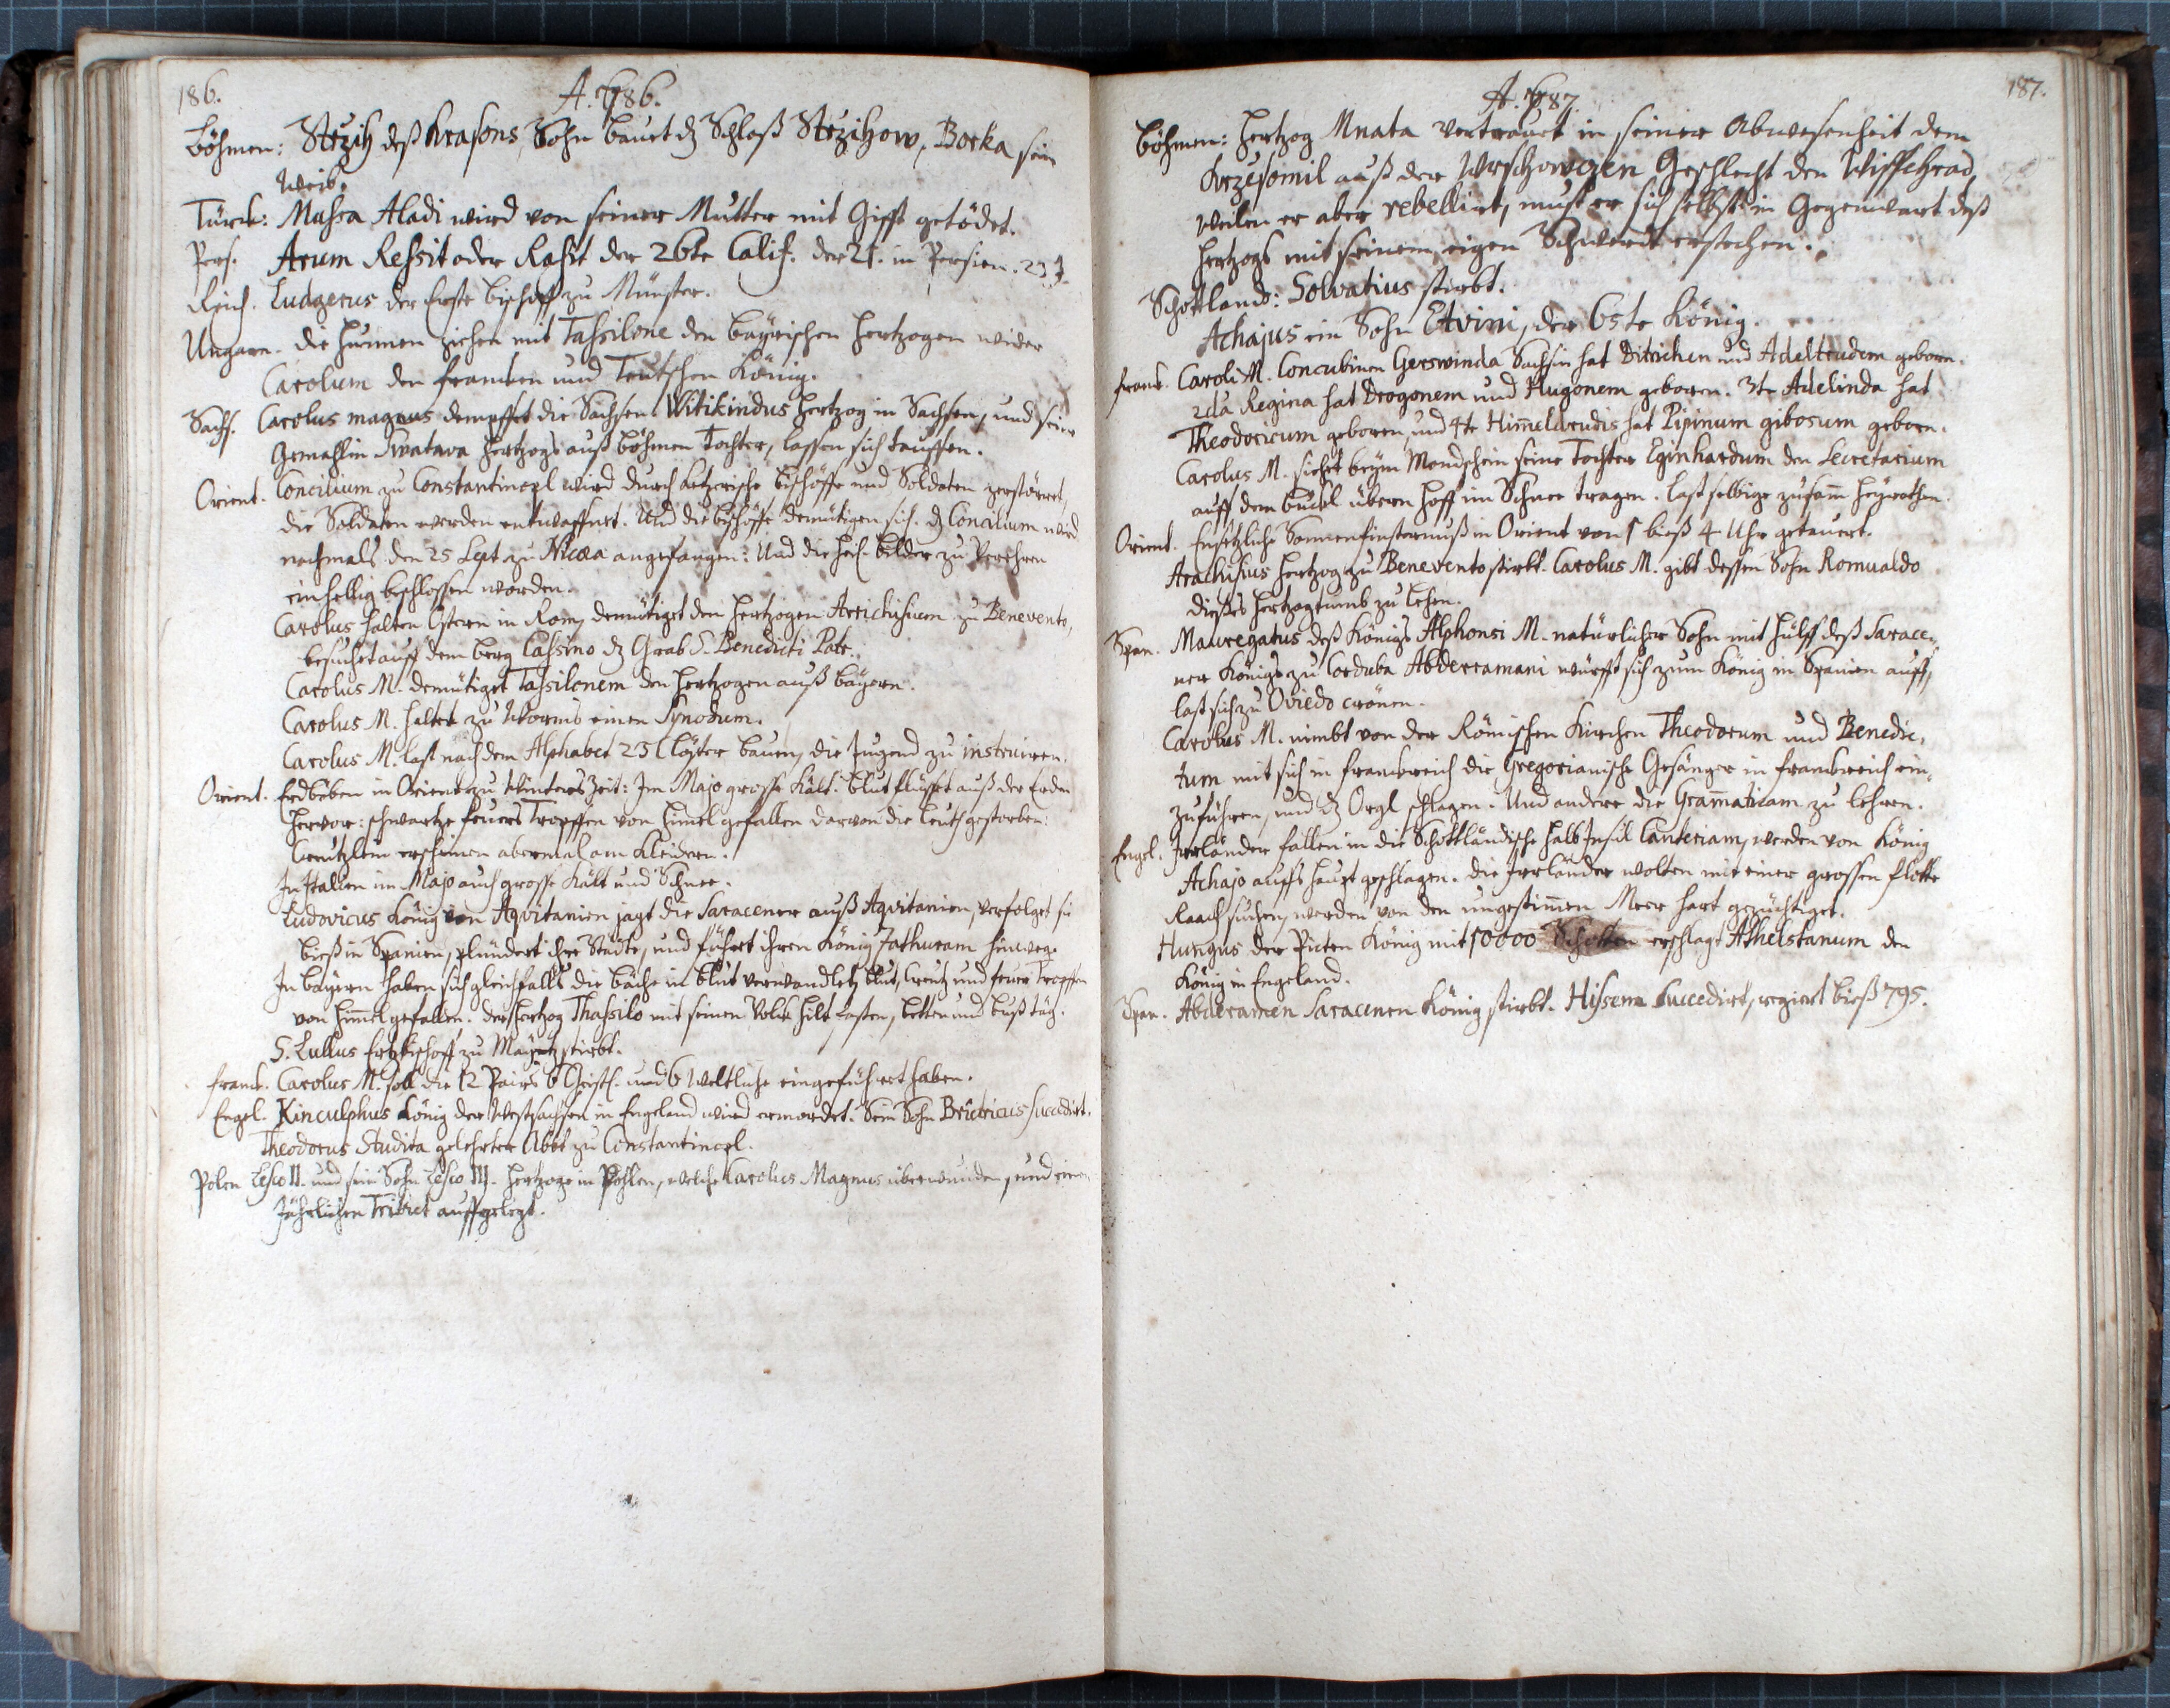 186.
A. 786.
Böhmen: Strzih deß Krasons Sohn bauet dz Schloß Strzihow, Borka sein
Weib.
Türck: Mussa Aladi wird von seiner Mutter mit Gifft getödet.
Pers. Arum Ressit oder Rasit der 26te Calif. der 21. in Persien. 23 J.
Reich. Ludgerus der Erste Bischoff zu Münster.
Ungarn. die Hunnen ziehen mit Tassilone den bayrischen Hertzogen wider
Carolum den francken und Teutschen König.
Sachs. Carolus magnus dempffet die Sachsen. Witikindus Hertzog in Sachsen, und seine
Gemahlin Swatava Hertzogs auß Böhmen Tochter, lassen sich tauffen.
Orient. Concilium zu Constantinopl wird durch ketzerische Bischöffe und Soldaten zerstörret,
die Soldaten werden entwaffnet. Und die Bischöffe demütigen sich. dz Concilium wird
nachmals den 25 Sept zu Nicæa angefangen: Und die Heil. bilder zu Verehren
einhellig beschlossen worden.
Carolus halten Ostern in Rom, demütiget den Hertzogen Arrichisium zu Benevento,
besucht auff dem berg Cassino dz Grab S. Benedicti Patr.
Carolus M. demütiget Tassilonem den Hertzogen auß bayern.
Carolus M. haltet zu Worms einen Synodum.
Carolus M. last nach dem Alphabet 23 Clöster bauen, die Jugend zu instruiren.
Orient. Erdbeben in Orient zu Winters Zeit: Im Majo grosse Kält. blut flüsset auß der Erden
hervor: schwartze feuers Tropffen von Himel gefallen darvon die Leuth gestorben:
Creutzlein erscheinen abermal am Kleidern.
In Italien im Majo auch grosse Kält und Schnee.
Ludovicus König von Aqvitanien jagt die Saracener auß Aqvitanien, verfolget sie
bieß in Spanien, plündert ihre Städte, und führet ihren König Jathuram hinweg.
In bayern haben sich gleichfalls die bäche in blut verwandlet, blut, Creutz und feuer Tropffen
von Himel gefallen. der Hertzog Thassilo mit seinen Volck hilt fasten, betten und buß täg.
S. Lullus Ertzbischoff zu Mayntz stirbt.
franck. Carolus M. soll die 12 Pairs 6 Geistl. und 6 Weltliche eingeführet haben.
Engel. Kinculphus König der Westsachsen in Engeland wird ermordet. Sein Sohn Britricus succedirt.
Theodorus Studita gelehrter Abbt zu Constantinopl.
Polen Lesco II. und sein Sohn Lesco III. Hertzoge in Pohlen, welche Carolus Magnus überwunden, und einen
Jährlichen Tribut auffgelegt.
187.
A. 787.
Böhmen: Hertzog Mnata vertrauet in seiner Abwesenheit dem
Krzesomil auß der Wrschowczen Geschlecht den Wissehrad,
Weilen er aber rebellirt, must er sich selbst in Gegenwart deß
Hertzogs mit seinem eigen Schwerdt erstechen.
Schottland: Solvatius stirbt.
Achajus ein Sohn Etvini, der 65te König.
franck. Caroli M. Concubinen Gerswinda Sachsin hat Ditrichen und Adeltrudem geboren.
2da Regina hat Drogonem und Hugonem geboren. 3te Adelinda hat
Theodoricum geboren, und 4te Himeldrudis hat Pipinum gibosum geboren.
Carolus M. siehet beym Mondschein seine Tochter Eginhardum den Secretarium
auff dem buckl übern Hoff im Schnee tragen. last selbige zusam̃ heyrathen.
Orient. Entsetzliche Sonnenfinsternuß in Orient von 1 bieß 4 Uhr getauert.
Arachisius Hertzog zu Benevento stirbt. Carolus M. gibt dessen Sohn Romualdo
dieses Hertzogtumb zu Lehen.
Span. Mauregatus deß Königs Alphonsi M. natürlicher Sohn mit Hülff deß Sarace,,
ner Königs zu Corduba Abderramani würfft sich zum König in Spanien auff,
last sich zu Oviedo crönen.
Carolus M. nimbt von der Römischen Kirchen Theodorum und Benedic,
tum mit sich in franckreich die Gregorianische Gesänger in franckreich ein,
zuführen, und dz Orgl schlagen. Und andere die Gram̃aticam zu lehren.
Engel. Irrländer fallen in die Schottländische halb Insul Canteriam, werden von König
Achajo auffs Haupt geschlagen. die Irrländer wolten mit einer grossen flotte
Raach suchen, werden von den ungestim̃en Meer hart gezüchtiget.
Hungus der Picten König mit 10000 Schotten erschlagt Athelstanum den
König in Engeland.
Span. Abderamen Saracenen König stirbt. Hissem succedirt, regiert bieß 795.